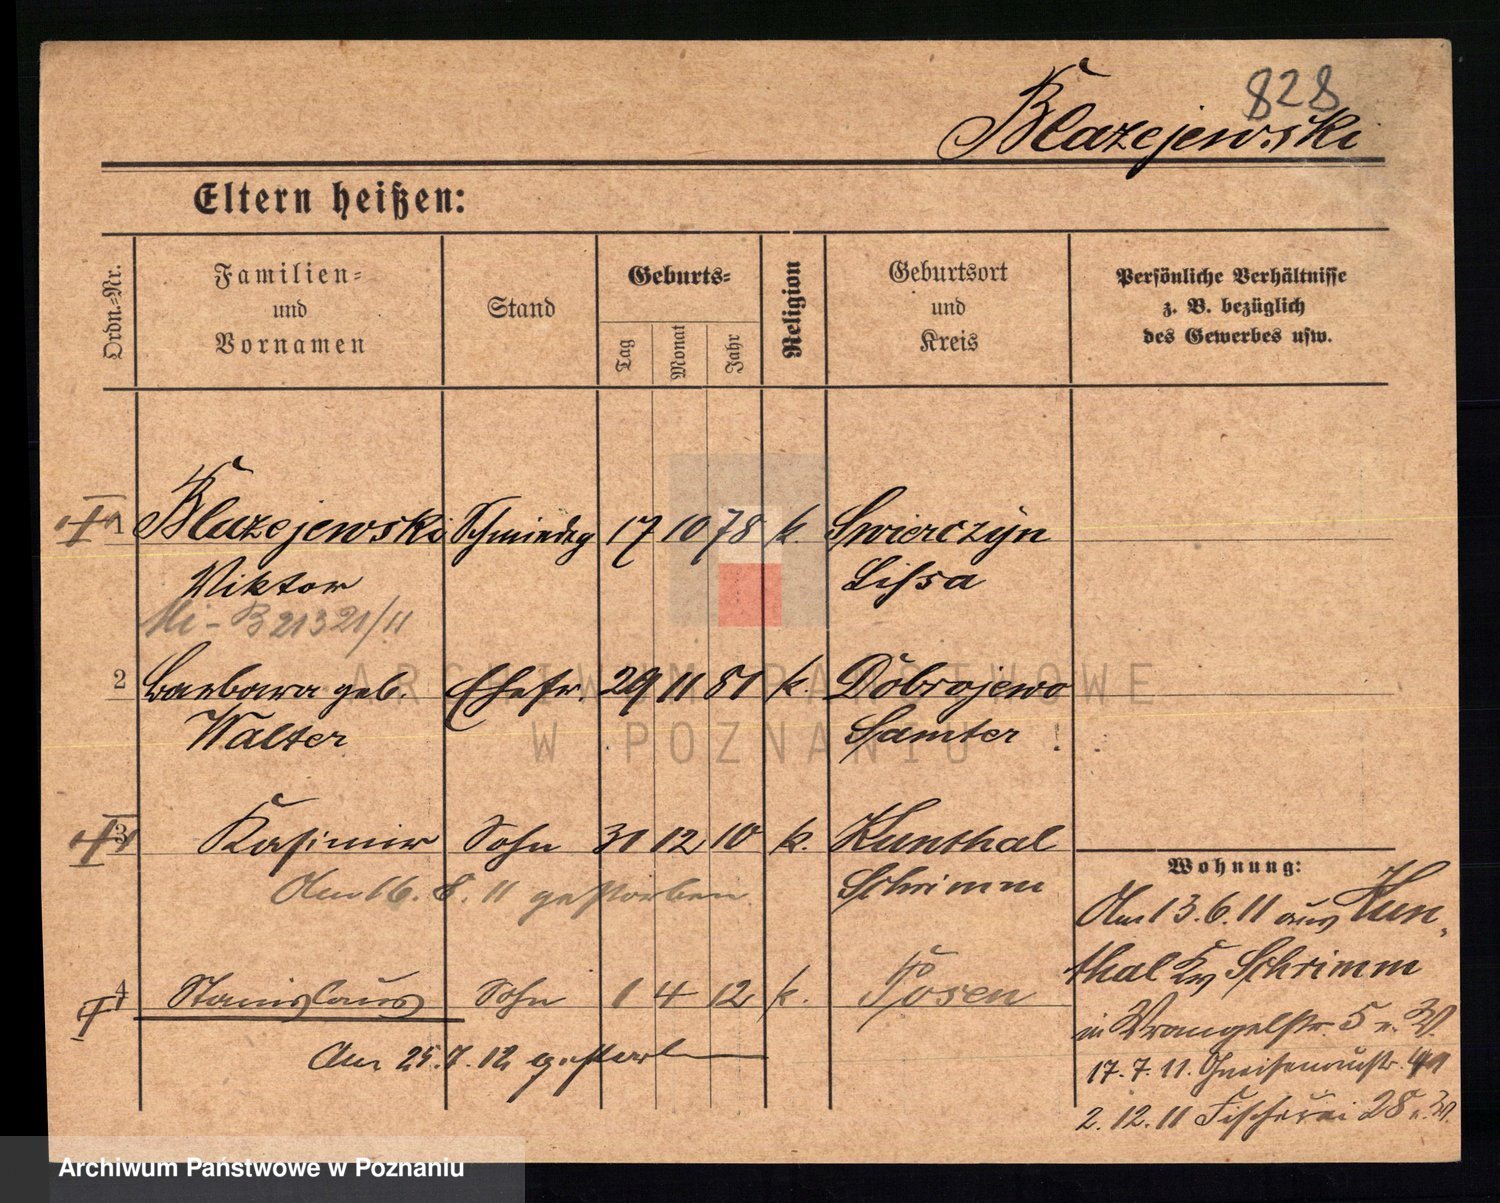 828
Blazejewski
Eltern heißen:
Ordn.-Nr.
Familien-
und
Vornamen
Stand
Geburts-
Tag
Monat
Jahr
Religion
Geburtsort
und
Kreis
Persönliche Verhältnisse
z. B. bezüglich
des Gewerbes usw.
1 Blazejewski 17 10 78 k. Swierczyn
Viktor Lissa
B 21321/11
2 Barbara geb. Ehefr. 29 11 81 k. Dobrojewo
Walter Samter
3 Kasimir Sohn 31 12 10 k. Kunthal
Am 16. 8. 11 gestorben Schrimm
4 Stanislaus Sohn 1 4 12 k. Posen
Am 25. 7. 12 gestorb
Wohnung:
Am 13. 6. 11 aus Kun-
thal Kr Schrimm
in Wrangelstr. 5 v. W.
17. 7. 11. Gneisenaustr.
2. 12. 11 Fischerei 28
ARCHIWUM PAŃSTWOWE
W POZNANIU
Archiwum Państwowe w Poznaniu